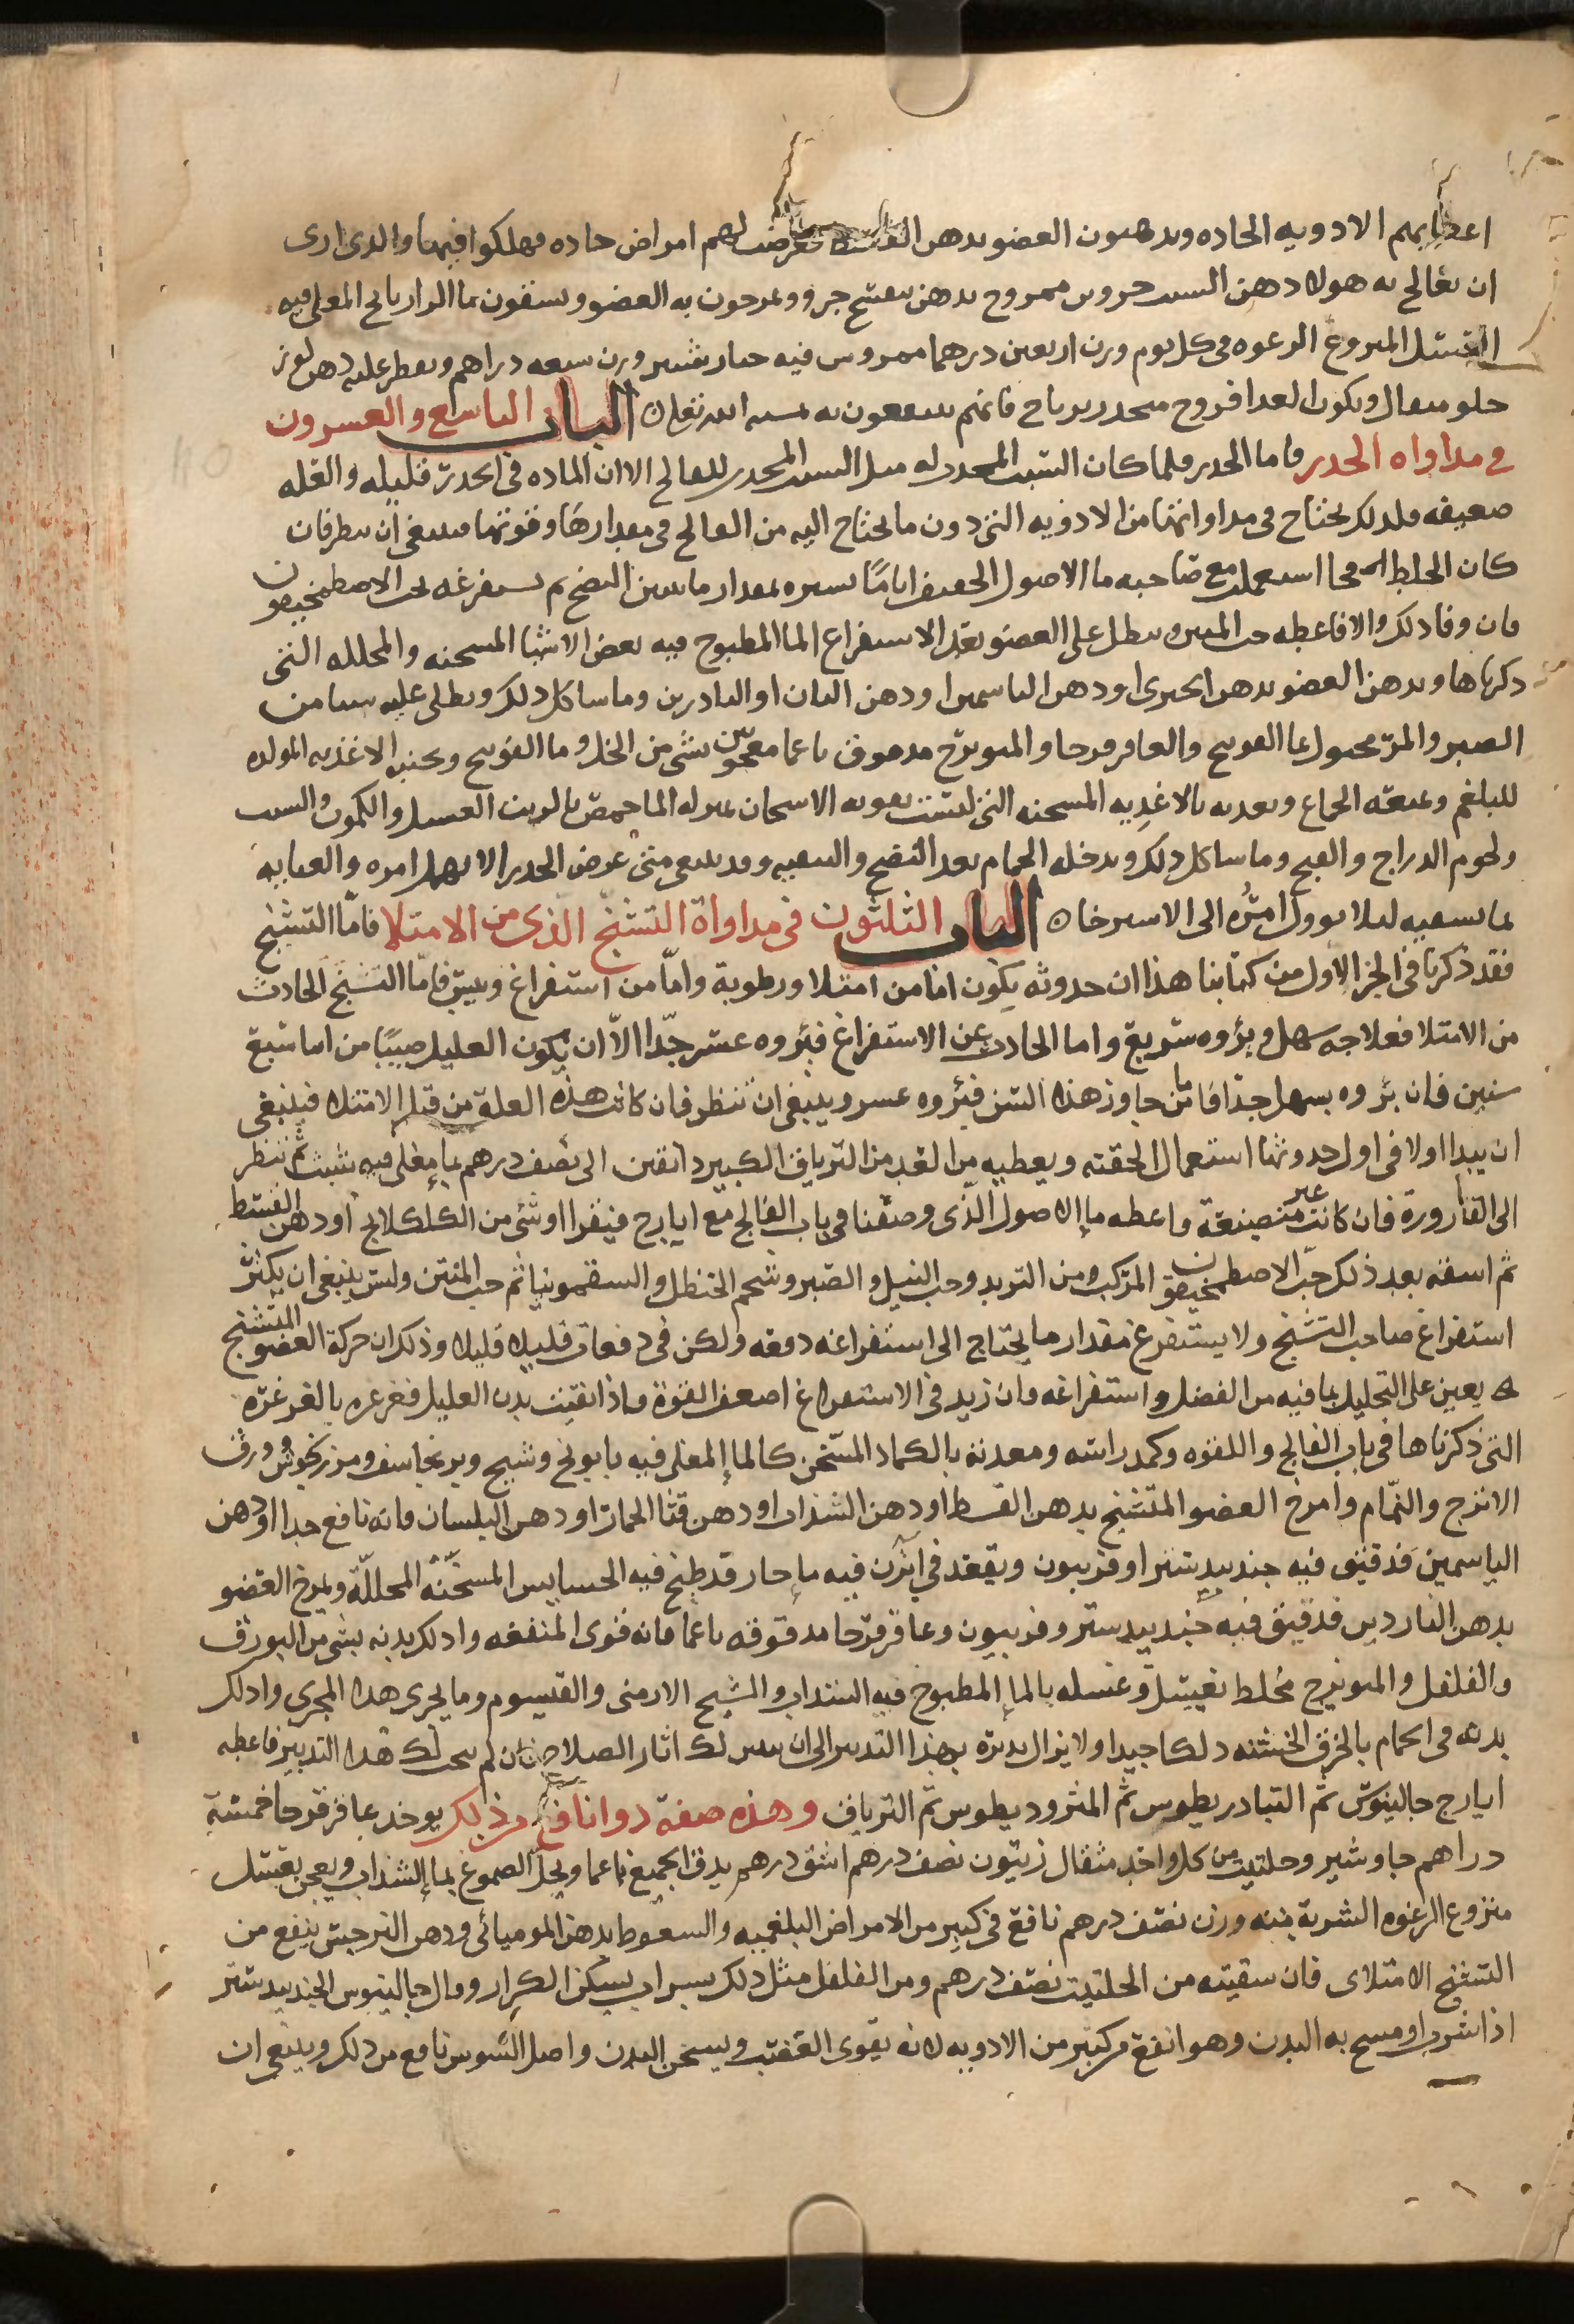 اعطايهم الادويه الحاده ويدهنون العضو بدهن القسط فعرضت لهم امراض حاده فهلكوا فيها والدى ارى
ان يعالج به هولا دهن السب حروين ممروح بدهن بنفسج جزو ويمرحون به العضو ويسقون ماالرازيانج المغلى فيه
العسل المنزوع الرعوه فى كل يوم وزن اربعين درهما ممروس فيه خيارشنبر وزن سبعه دراهم ويقطر عليه دهن لوز
حلو مثقال ويكون الغدا فروج متخذ زيرباج فانهم ينتفعون به بمشيه الله تعلى ٥ الباب التاسع والعسرون
فى مداواه الخدر فاما الخدر فلما كان السبب المحدث له مثل السبب المحدث للفالج الا ان الماده فى الخدر قليله والعله
ضعيفه ولدلك يحتاج فى مداواتها من الادويه التى دون ما يحتاج اليه من الفالج فى مقدارها وقوتها فينبغى ان ينظر فان
كان الخلط فجا استعملت مع صاحبه ما الاصول الخفيف اياما يسيره بمقدار ما يتبين النضج ثم يستفرغه بحب الاصطمخيقون
فان وفا دلك والا فاعطه حب المنتن وينطل على العضو بعد الاستفراغ الما المطبوخ فيه بعض الاشيا المسخنه والمحلله التى
دكرناها ويدهن العضو بدهن الخيرى او دهن الياسمين او دهن البان او الناردين وما شاكل دلك ويطلى عليه شيا من
الصبر والمر محلول بما الفوتنج والعاقرقرحا والميويزج مدقوق ناعما معجون بشى من الخل وما الفوتنج ويجنبه الاغذيه المولده
للبلغم ويمنعه الجماع ويغديه بالاغديه المسخنه التى ليست بقويه الاسخان بمنزله الما حمص بالزيت العسل والكمون والشبت
ولحوم الدراج والقبج وما شاكل دلك ويدخله الحمام بعد النضج والتنقيه وقد ينبغى متى عرض الخدر الا يهمل امره والعنايه
بما يسقيه ليلا يوول امره الى الاسترخا ٥ الباب الثلثون فى مداواة التشنج الذى من الامتلا فاما التشنج
فقد ذكرنا فى الجز الاول من كتابنا هذا ان حدوثه يكون اما من امتلا ورطوبة واما من استفراغ ويبس فاما التشنج الحادث
من الامتلا فعلاجه سهل وبرؤه سريع واما الحادث عن الاستفراغ فبرؤه عسر جدا الا ان يكون العليل صبيا من ابنا سبع
سنين فان برؤه يسهل جدا فاما من جاوز هذا السن فبرؤه عسر وينبغى ان تنظر فان كانت هذه العلة من قبل الامتلا فينبغى
ان يبدا اولا فى اول حدوثها استعمال الحقنه ويعطيه من الغد من الترياق الكبير دانقين الى نصف درهم بما مغلى فيه شبث ثم تنظر
الى القارورة فان كانت غير منصبغة فاعطه ما الاصول الذى وصفنا فى باب الفالج مع ايارج فيقرا او شى من الكلكلانج او دهن القسط
ثم اسقه بعد ذلك حب الاصطمخيقون المركب ومن التربد وحب النيل والصبر وشحم الحنظل والسقمونيا ثم حب المنتن وليس ينبغى ان يكثر
استفراغ صاحب التشنج ولا يستفرغ مقدار ما يحتاج الى استفراغه دفعه ولكن فى دفعات قليلا قليلا وذلك ان حركة العضو المتشنج
يعين على التحليل بما فيه من الفضل واستفراغه فان زيد فى الاستفراغ اضعف القوة فاذا انقيت بدن العليل فغرغره بالغرغره
التى ذكرناها فى باب الفالج واللقوه وكمد راسه ومعدته بالكماد المسخن كالما المغلى فيه بابونج وشيح وبرنجاسف ومرزنجوش وورق
الاترج والنمام وامرخ العضو المتشنج بدهن القسط او دهن السذاب او دهن قثا الحمار او دهن البلسان فانه نافع جدا او دهن
الياسمين قد فتق فيه جندبيدستر او فربيون ويقعد فى ابزن فيه ما حار قد طبخ فيه الحسايس المسخنه المحللة ويمرخ العضو
بدهن الناردين قد فتق فيه جندبيدستر وفربيون وعاقرقرحا مدقوقه ناعما فانه قوى المنفعه وادلك بدنه بشى من البورق
والفلفل والميويزج مخلط بعسل وغسله بالما المطبوخ فيه السداب والشيح الارمنى والقيسوم وما يجرى هدا المجرى وادلك
بدنه فى الحمام بالخرق الخشنه دلكا جيدا ولا يزال يدبره بهذا التدبير الى ان يتبين لك اثار الصلاح فان لم ينجب لك هدا التدبير فاعطه
ايارج جالينوس ثم التيادريطوس ثم المثروديطوس ثم الترياق وهذه صفة دوا نافع من ذلك يوخد عاقرقرحا خمسة
دراهم جاوشير وحلتيت من كل واحد مثقال زيتون نصف درهم اشق درهم يدق الجميع ناعما ويحل الصموغ بما السداب ويعجن بعسل
منزوع الرغوه الشربة منه وزن نصف درهم نافع فى كبير من الامراض البلغميه والسعوط بدهن الموميائى ودهن النرجس ينفع من
التشنج الامتلاى فان سقيته من الحلتيت نصف درهم ومن الفلفل مثل دلك بسراب يسكن الكزاز وقال جالينوس الجندبيدستر
اذا شرب او مسح به البدن وهو انفع من كثير من الادويه لانه يقوى العصب ويسخن البدن واصل السوس نافع من دلك وينبغى ان